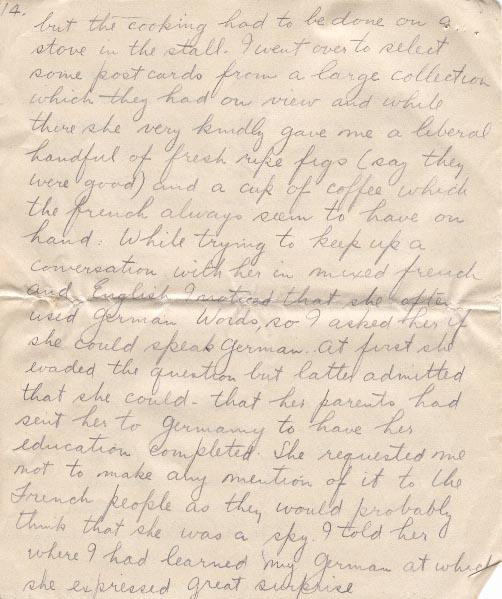 14.
but the cooking had to be done on a...
stove in the stall. I went over to select
some post cards from a large collection
which they had on view and while
there she very kindly gave me a liberal
handful of fresh ripe figs (say they
were good) and a cup of coffee which
the french always seem to have on
hand. While trying to keep up a
conversation with her in mixed french
and English I noticed that she often
used German Words, so I asked her if
she could speak German. At first she
evaded the question but latter admitted
that she could - that her parents had
sent her to Germany to have her
education completed. She requested me
not to make any mention of it to the
French people as they would probably
think that she was a spy. I told her
where I had learned my German at which
she expressed great surprise